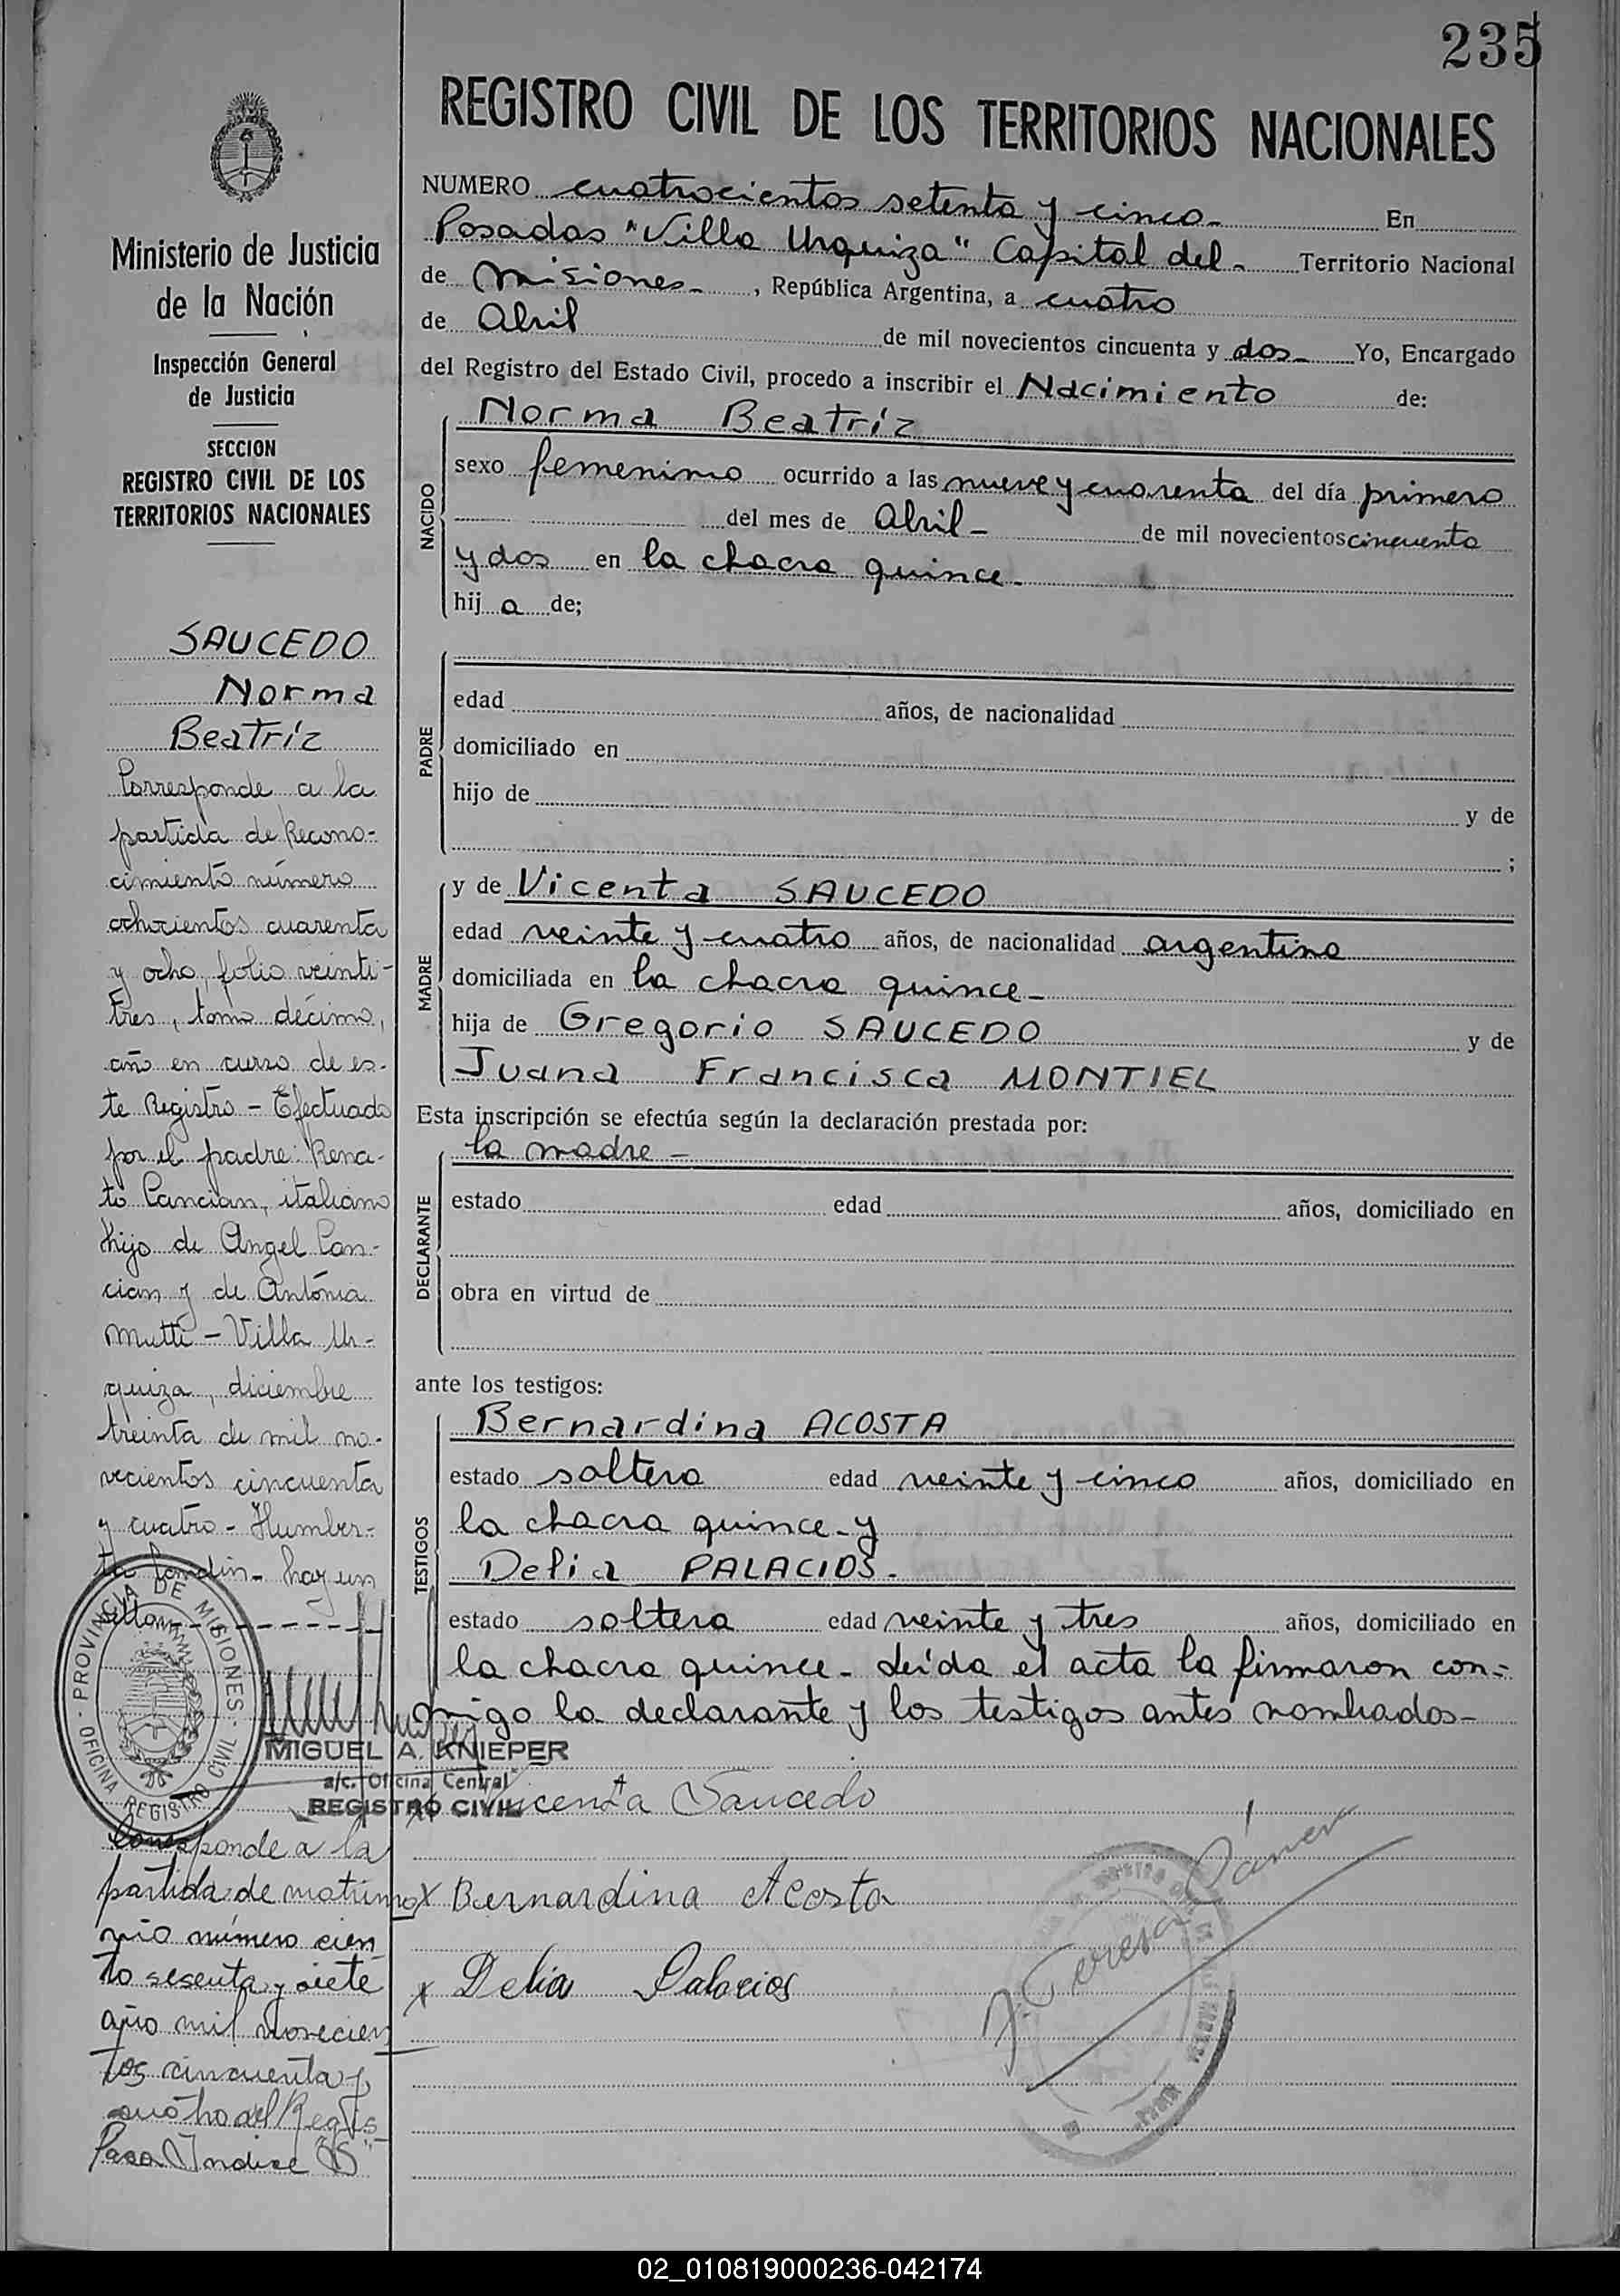 235
REGISTRO CIVIL DE LOS TERRITORIOS NACIONALES
Ministerio de Justicia
de la Nación
Inspección General
de Justicia
SECCION
REGISTRO CIVIL DE LOS
TERRITORIOS NACIONALES
SAUCEDO
Norma
Beatríz
Corresponde a la
partida de Recono-
cimiento número
ochocientos cuarenta
y ocho, folio veinti-
tres, tomo décimo,
año en curso de es-
te Registro - Efectuado
por el padre: Rena-
to Cancian, italiano
hijo de Angel Can-
cian y de Antónia
Mutti - Villa Ur-
quiza, diciembre
treinta de mil no-
vecientos cincuenta
y cuatro - Humber-
to - hay un
sello
PROVINCIA DE MISIONES
OFICINA REGISTRO CIVIL
MIGUEL A. KNIEPER
a/c. Oficina Central
REGISTRO CIVIL
Corresponde a la
partida de matrimo
nio número cien
to sesenta y siete
año mil novecien
tos cincuenta y
cuatro del Regis
Para Indice "S"
NUMERO cuatrocientos setenta y cinco- En
Posadas "Villa Urquiza" Capital del- Territorio Nacional
de Misiones- , República Argentina, a cuatro
de Abril de mil novecientos cincuenta y dos- Yo, Encargado
del Registro del Estado Civil, procedo a inscribir el Nacimiento de:
NACIDO
Norma Beatríz
sexo femenino ocurrido a las nueve y cuarenta del día primero
del mes de Abril- de mil novecientos cincuenta
y dos en la chacra quince-
hij a de;
PADRE
edad años, de nacionalidad
domiciliado en
hijo de y de
;
MADRE
y de Vicenta SAUCEDO
edad veinte y cuatro años, de nacionalidad argentina
domiciliada en la chacra quince-
hija de Gregorio SAUCEDO y de
Juana Francisca MONTIEL
Esta inscripción se efectúa según la declaración prestada por:
DECLARANTE
la madre-
estado edad años, domiciliado en
obra en virtud de
ante los testigos:
TESTIGOS
Bernardina ACOSTA
estado soltera edad veinte y cinco años, domiciliado en
la chacra quince- y
Delia PALACIOS-
estado soltera edad veinte y tres años, domiciliado en
la chacra quince- Leída el acta la firmaron con-
migo la declarante y los testigos antes nombrados-
Vicenta Saucedo
x Bernardina Acosta
x Delia Palacios
02_010819000236-042174